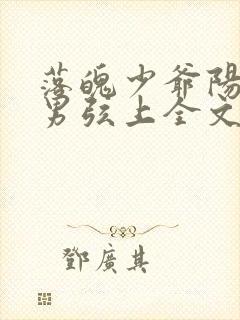 落魄少爺陽
男弦上全文
鄧廣其